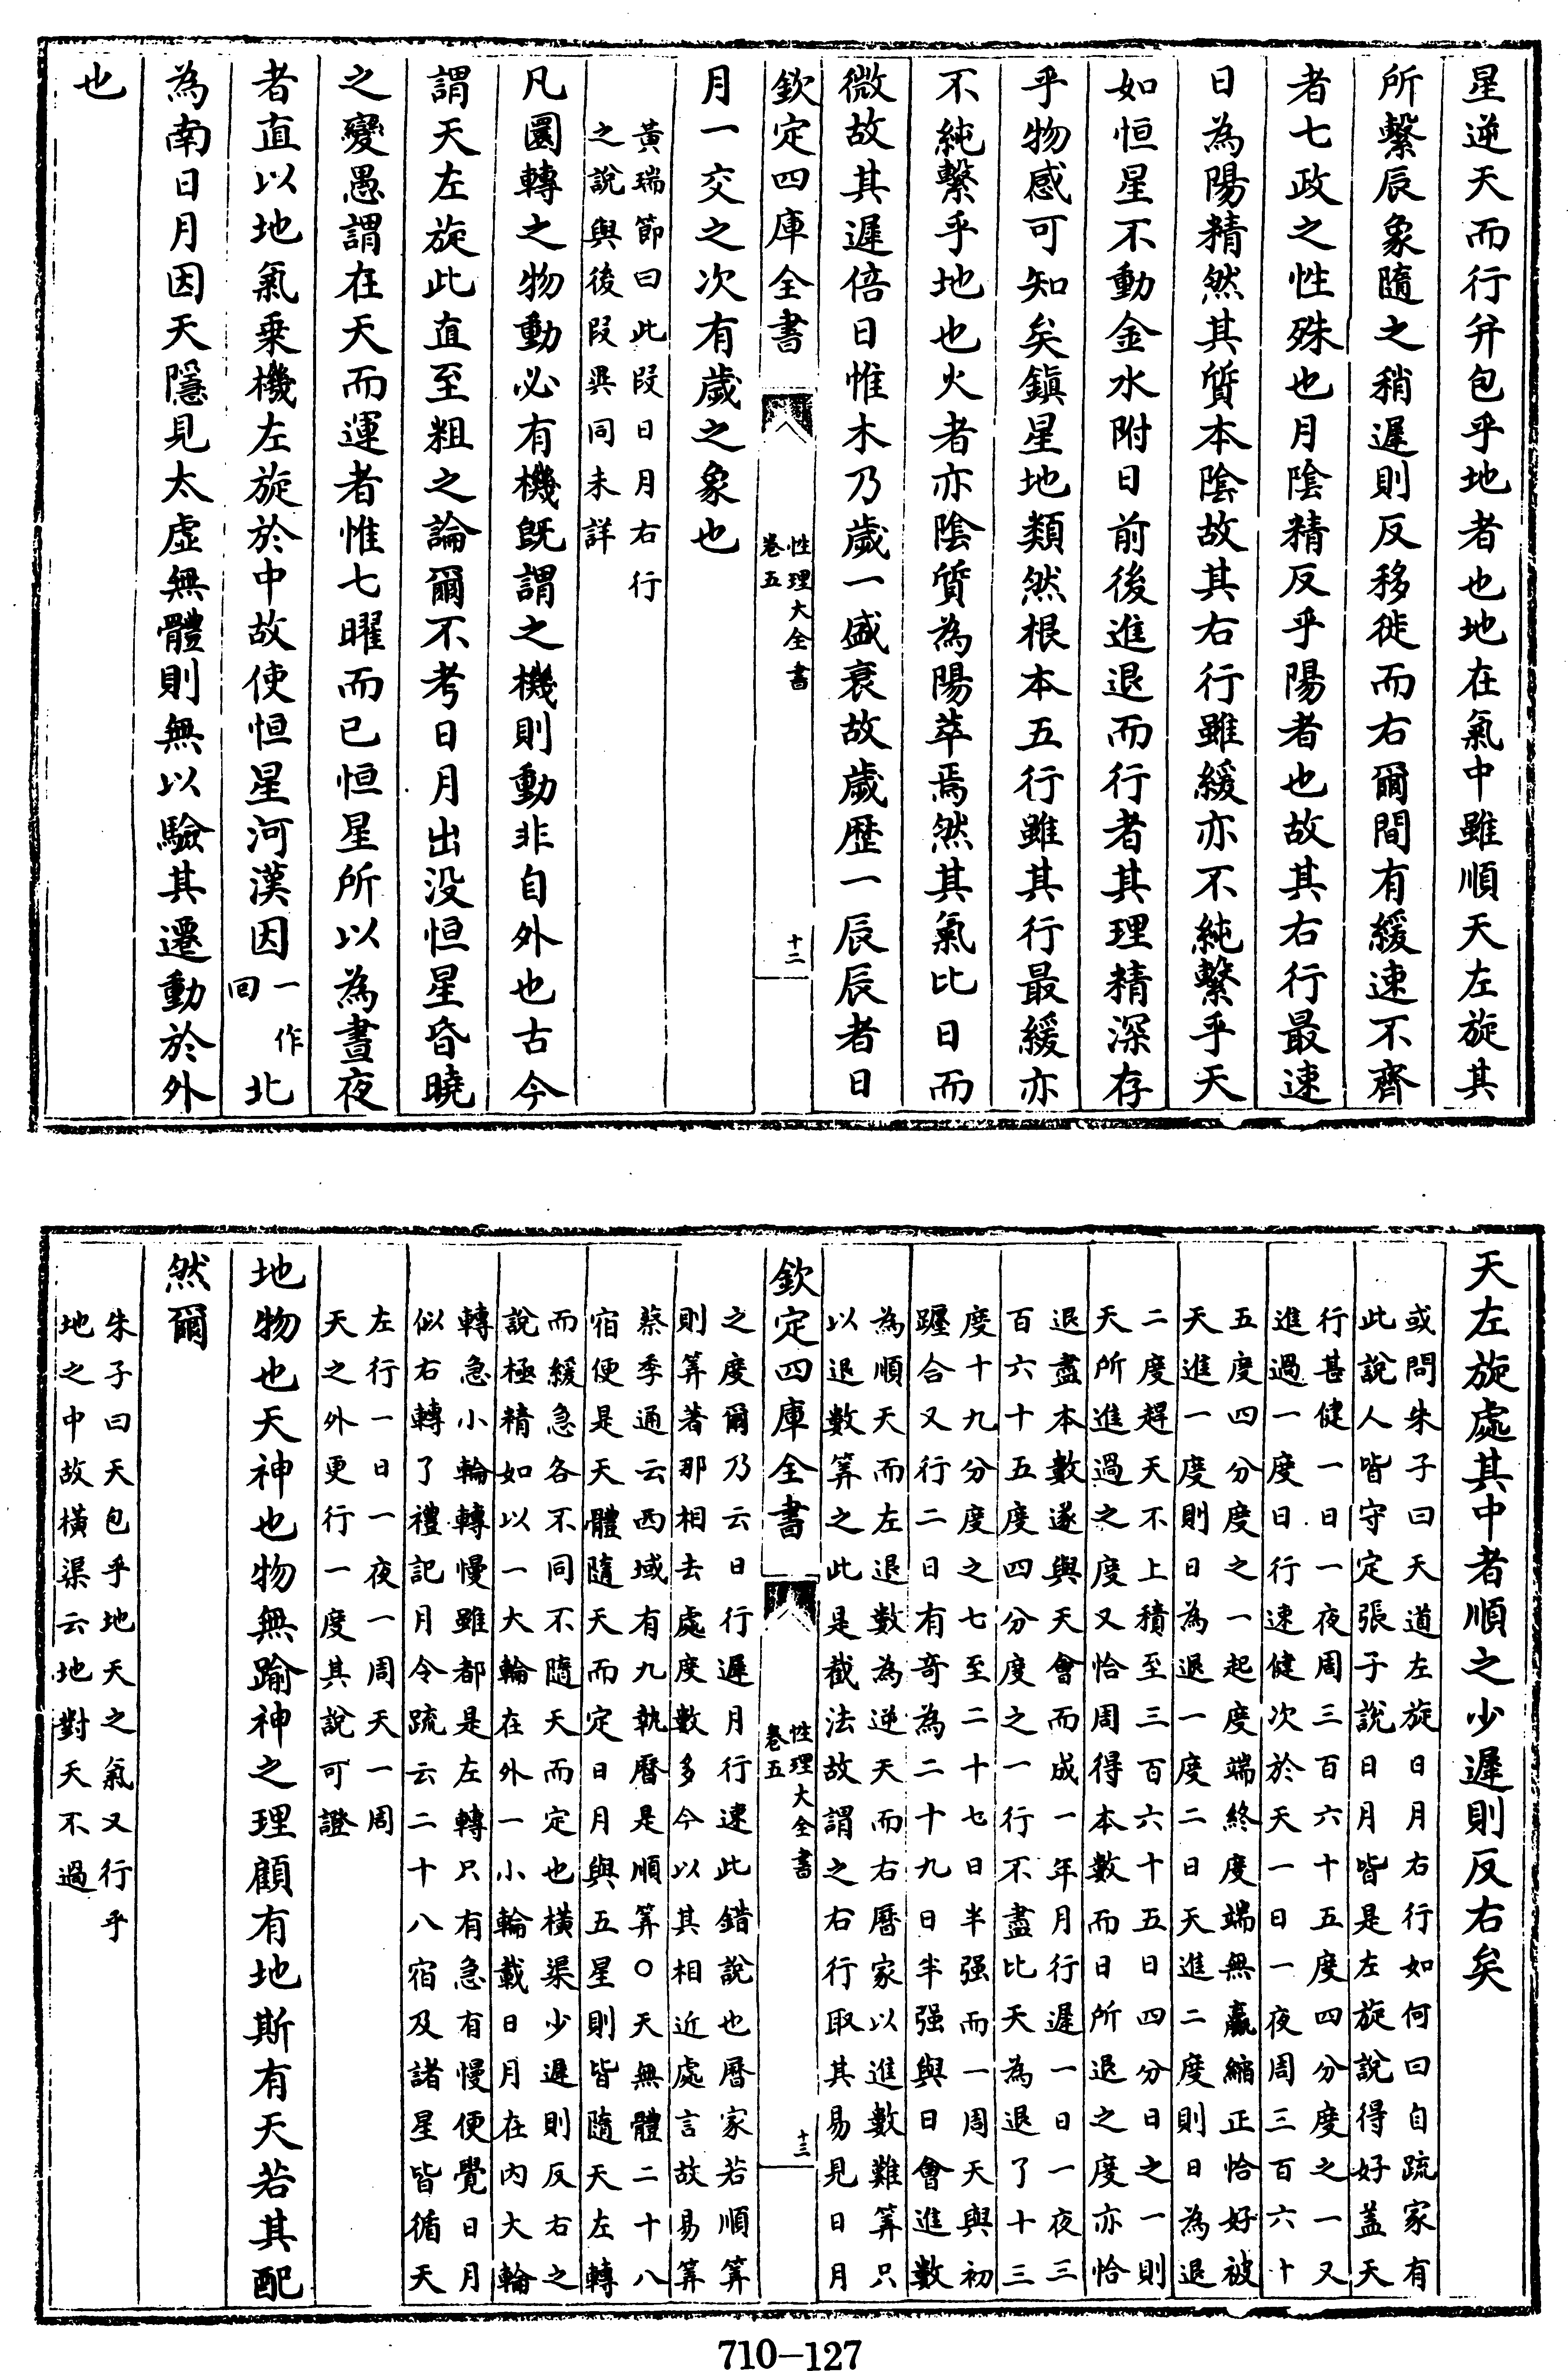 星逆天而行并包乎地者也地在氣中雖順天左旋其
所繫辰象隨之稍遲則反移徙而右爾間有緩速不齊
者七政之性殊也月陰精反乎陽者也故其右行最速
日為陽精然其質本陰故其右行雖緩亦不純繫乎天
如恒星不動金水附日前後進退而行者其理精深存
乎物感可知矣鎮星地類然根本五行雖其行最緩亦
不純繫乎地也火者亦陰質為陽萃焉然其氣比日而
微故其遲倍日惟木乃歲一盛衰故歲歷一辰辰者日
欽定四庫全書
性理大全書
卷五
十二
月一交之次有歲之象也
黃瑞節曰此段日月右行
之說與後段異同未詳
凡圜轉之物動必有機既謂之機則動非自外也古今
謂天左旋此直至粗之論爾不考日月出沒恒星昏曉
之變愚謂在天而運者惟七曜而已恒星所以為晝夜
者直以地氣乘機左旋於中故使恒星河漢因一作回北
為南日月因天隱見太虛無體則無以驗其遷動於外
也
天左旋處其中者順之少遲則反右矣
或問朱子曰天道左旋日月右行如何曰自疏家有
此說人皆守定張子說日月皆是左旋說得好蓋天
行甚健一日一夜周三百六十五度四分度之一又
進過一度日行速健次於天一日一夜周三百六十
五度四分度之一起度端終度端無贏縮正恰好被
天進一度則日為退一度二日天進二度則日為退
二度趕天不上積至三百六十五日四分日之一則
天所進過之度又恰周得本數而日所退之度亦恰
退盡本數遂與天會而成一年月行遲一日一夜三
百六十五度四分度之一行不盡比天為退了十三
度十九分度之七至二十七日半强而一周天與初
躔合又行二日有奇為二十九日半强與日會進數
為順天而左退數為逆天而右曆家以進數難筭只
以退數筭之此是截法故謂之右行取其易見日月
欽定四庫全書
性理大全書
卷五
十三
之度爾乃云日行遲月行速此錯說也曆家若順筭
則筭著那相去處度數多今以其相近處言故易筭
蔡季通云西域有九執曆是順筭○天無體二十八
宿便是天體隨天而定日月與五星則皆隨天左轉
而緩急各不同不隨天而定也橫渠少遲則反右之
說極精如以一大輪在外一小輪載日月在內大輪
轉急小輪轉慢雖都是左轉只有急有慢便覺日月
似右轉了禮記月令疏云二十八宿及諸星皆循天
左行一日一夜一周天一周
天之外更行一度其說可證
地物也天神也物無踰神之理顧有地斯有天若其配
然爾
朱子曰天包乎地天之氣又行乎
地之中故橫渠云地對天不過
710-127